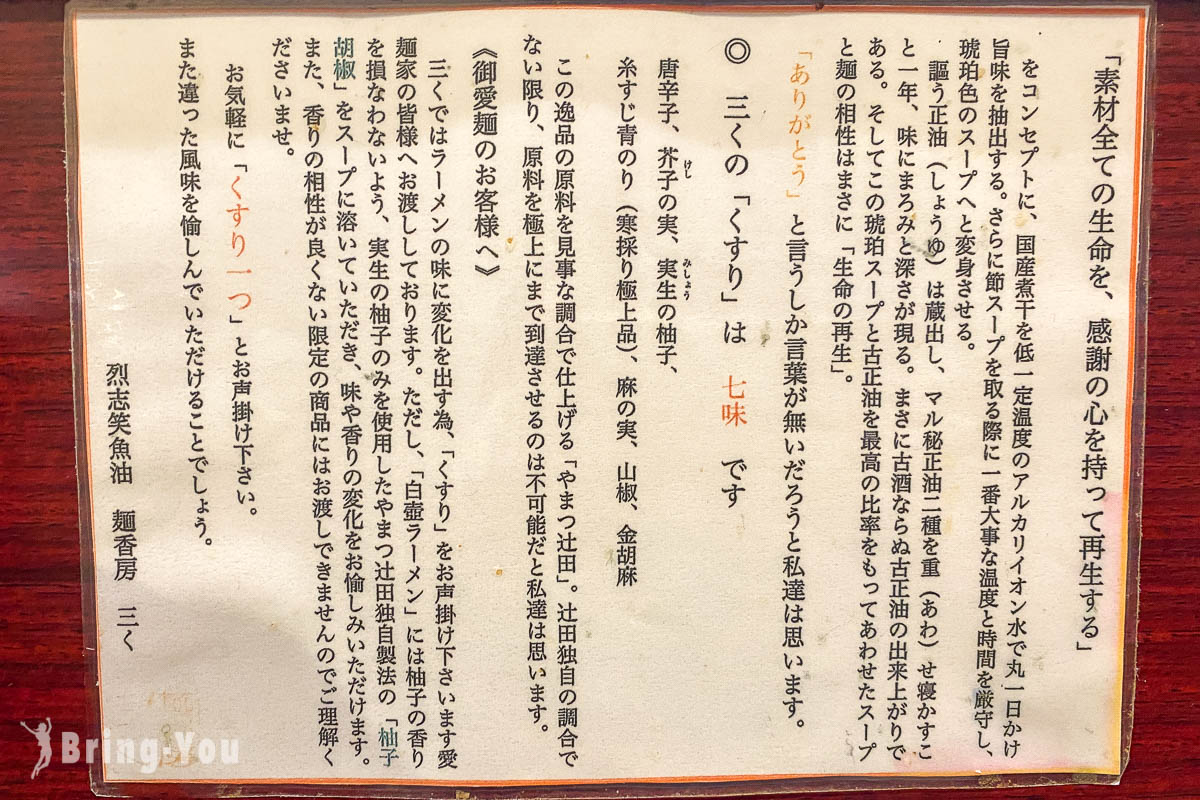 「素材全ての生命を、感謝の心を持って再生する」
をコンセプトに、国産煮干を低一定温度のアルカリイオン水で丸一日かけ
旨味を抽出する。さらに節スープを取る際に一番大事な温度と時間を厳守し、
琥珀色のスープへと変身させる。
謳う正油（しょうゆ）は蔵出し、マル秘正油二種を重（あわ）せ寝かすこ
と一年、味にまろみと深さが現る。まさに古酒ならぬ古正油の出来上がりで
ある。そしてこの琥珀スープと古正油を最高の比率をもってあわせたスープ
と麺の相性はまさに「生命の再生」。
「ありがとう」と言うしか言葉が無いだろうと私達は思います。
◎ 三くの「くすり」は 七味 です
唐辛子、芥子の実、実生の柚子、
けし
みしょう
糸すじ青のり（寒採り極上品）、麻の実、山椒、金胡麻
この逸品の原料を見事な調合で仕上げる「やまつ辻田」。辻田独自の調合で
ない限り、原料を極上にまで到達させるのは不可能だと私達は思います。
《御愛麺のお客様へ》
三くではラーメンの味に変化を出す為、「くすり」をお声掛け下さいます愛
麺家の皆様へお渡ししております。ただし、「白壺ラーメン」には柚子の香り
を損なわないよう、実生の柚子のみを使用したやまつ辻田独自製法の「柚子
胡椒」をスープに溶いていただき、味や香りの変化をお愉しみいただけます。
また、香りの相性が良くない限定の商品にはお渡しできませんのでご理解く
ださいませ。
お気軽に「くすり一つ」とお声掛け下さい。
また違った風味を愉しんでいただけることでしょう。
烈志笑魚油 麺香房 三く
Bring-You